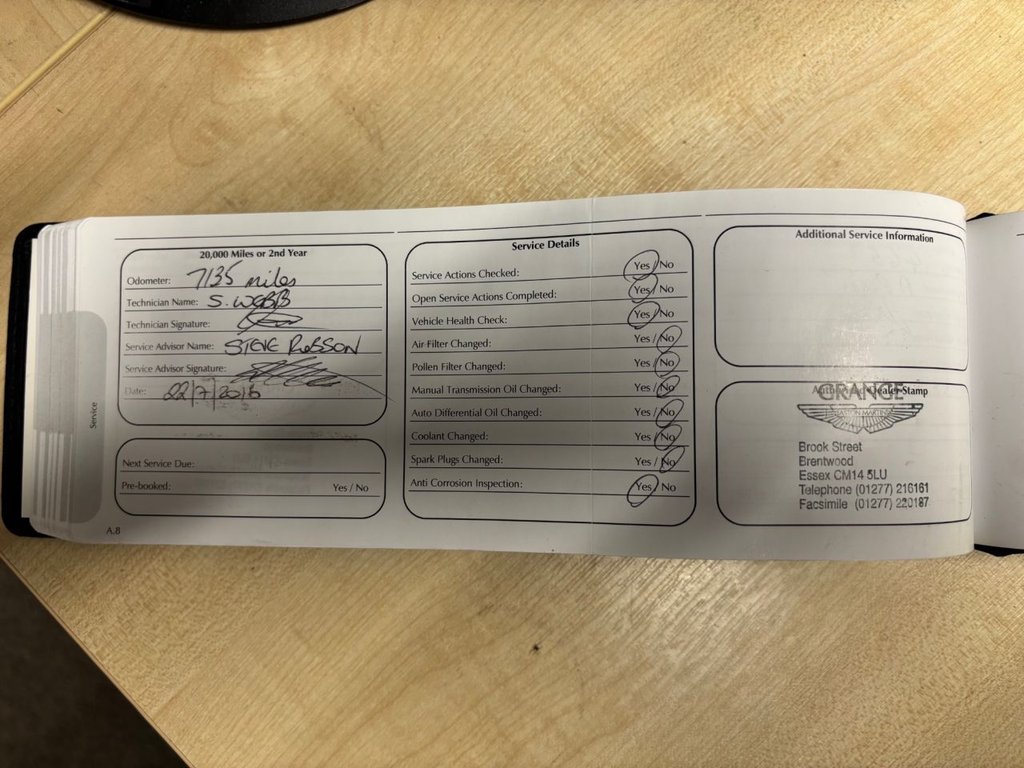 20,000 Miles or 2nd Year
Odometer: 7135 miles
Technician Name: S. WEBB
Technician Signature:
Service Advisor Name: STEVE ROBSON
Service Advisor Signature:
Date: 22/7/2016
Next Service Due:
Pre-booked: Yes / No
A.8
Service
Service Details
Service Actions Checked: Yes / No
Open Service Actions Completed: Yes / No
Vehicle Health Check: Yes / No
Air Filter Changed: Yes / No
Pollen Filter Changed: Yes / No
Manual Transmission Oil Changed: Yes / No
Auto Differential Oil Changed: Yes / No
Coolant Changed: Yes / No
Spark Plugs Changed: Yes / No
Anti Corrosion Inspection: Yes / No
Additional Service Information
Stamp
GRANGE
Brook Street
Brentwood
Essex CM14 5LU
Telephone (01277) 216161
Facsimile (01277) 220187